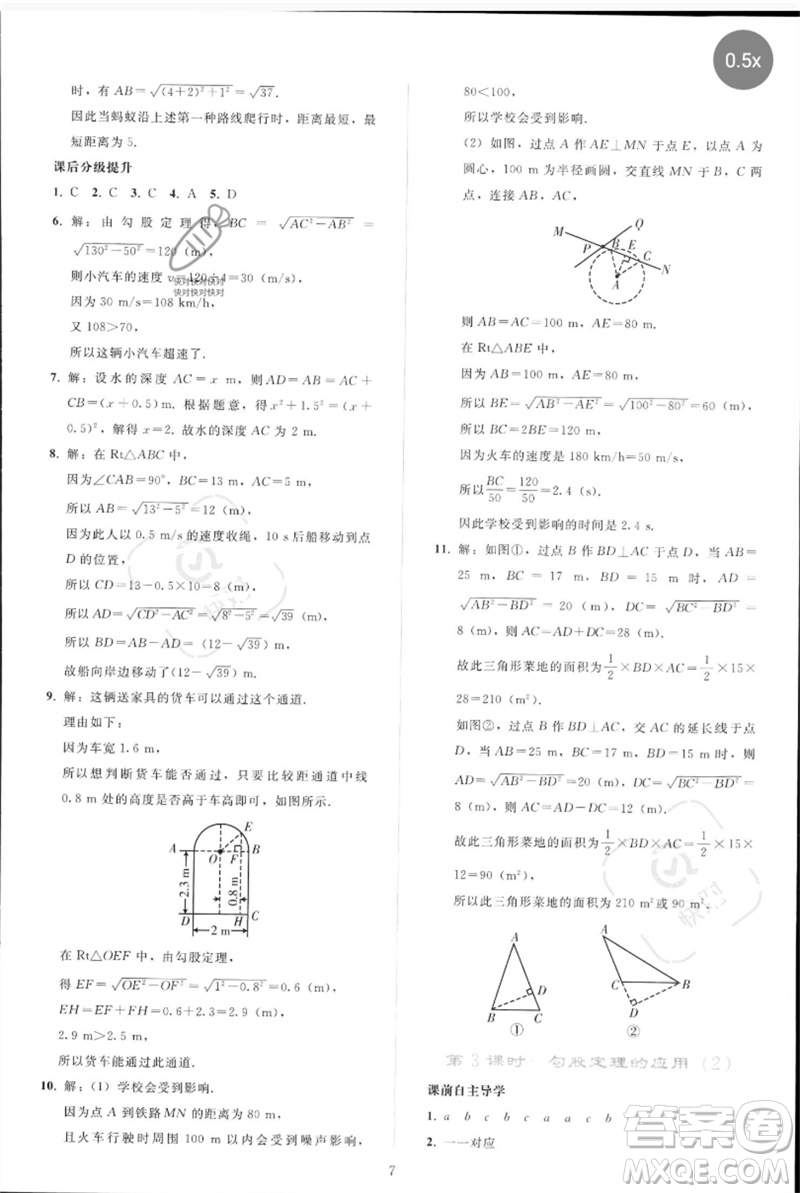 0.5x
时,有 AB=√((4+2)²+1²)=√37.
因此当蚂蚁沿上述第一种路线爬行时,距离最短,最
短距离为 5.
课后分级提升
1. C 2. C 3. C 4. A 5. D
6. 解:由勾股定理得,BC=√(AC²-AB²)=
√(130²-50²)=120 (m),
则小汽车的速度 v=120÷4=30(m/s),
快对快对快对
快对快对快对
因为 30 m/s=108 km/h,
又 108>70,
所以这辆小汽车超速了.
7. 解:设水的深度 AC=x m,则 AD=AB=AC+
CB=(x+0.5)m. 根据题意,得 x²+1.5²=(x+
0.5)²,解得 x=2. 故水的深度 AC 为 2 m.
8. 解:在 Rt△ABC 中,
因为∠CAB=90°,BC=13 m,AC=5 m,
所以 AB=√(13²-5²)=12(m),
因为此人以 0.5 m/s 的速度收绳,10 s 后船移动到点
D 的位置,
所以 CD=13-0.5×10=8(m),
所以 AD=√(CD²-AC²)=√(8²-5²)=√39(m),
所以 BD=AB-AD=(12-√39)m,
故船向岸边移动了(12-√39)m.
9. 解:这辆送家具的货车可以通过这个通道.
理由如下:
因为车宽 1.6 m,
所以想判断货车能否通过,只要比较距通道中线
0.8 m 处的高度是否高于车高即可,如图所示.
E
A O F B
2.3 m
0.8 m
D H C
2 m
在 Rt△OEF 中,由勾股定理,
得 EF=√(OE²-OF²)=√(1²-0.8²)=0.6 (m),
EH=EF+FH=0.6+2.3=2.9 (m),
2.9 m>2.5 m,
所以货车能通过此通道.
10. 解:(1)学校会受到影响.
因为点 A 到铁路 MN 的距离为 80 m,
且火车行驶时周围 100 m 以内会受到噪声影响,
80<100,
所以学校会受到影响.
(2)如图,过点 A 作 AE⊥MN 于点 E,以点 A 为
圆心,100 m 为半径画圆,交直线 MN 于 B,C 两
点,连接 AB,AC,
M Q
P B E C
N
A
则 AB=AC=100 m,AE=80 m.
在 Rt△ABE 中,
因为 AB=100 m,AE=80 m,
所以 BE=√(AB²-AE²)=√(100²-80²)=60 (m),
所以 BC=2BE=120 m,
因为火车的速度是 180 km/h=50 m/s,
所以 BC/50=120/50=2.4 (s),
因此学校受到影响的时间是 2.4 s.
11. 解:如图①,过点 B 作 BD⊥AC 于点 D,当 AB=
25 m,BC=17 m,BD=15 m 时,AD=
√(AB²-BD²)=20 (m),DC=√(BC²-BD²)=
8(m),所以 AC=AD+DC=28(m).
故此三角形菜地的面积为 1/2×BD×AC=1/2×15×
28=210 (m²).
如图②,过点 B 作 BD⊥AC,交 AC 的延长线于点
D,当 AB=25 m,BC=17 m,BD=15 m 时,
AD=√(AB²-BD²)=20(m),DC=√(BC²-BD²)=
8(m),所以 AC=AD-DC=12(m).
故此三角形菜地的面积为 1/2×BD×AC=1/2×15×
12=90(m²).
所以此三角形菜地的面积为 210 m²或 90 m².
A D B C ①
A C B D ②
第 3 课时 勾股定理的应用(2)
课前自主导学
1. a b c b c a a c b
2. 一一对应
7
快对
快对
答案圈
MXQE.COM